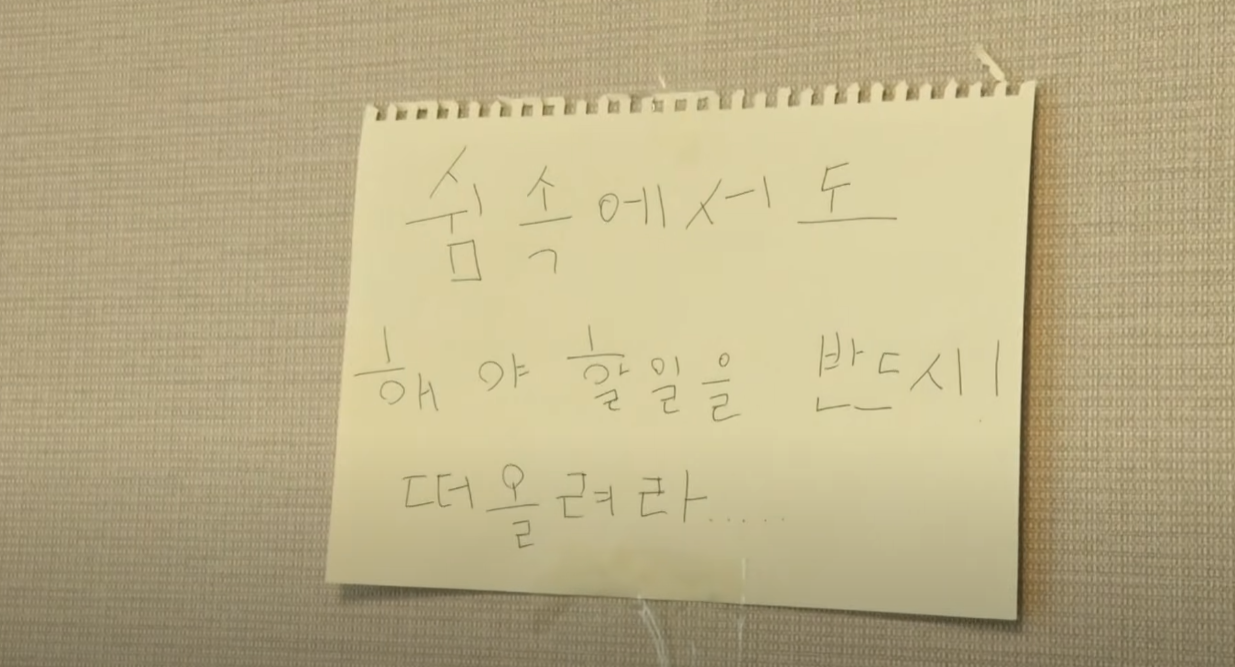 쉼 속에서도
해야 할 일을 반드시!
떠올려라.....